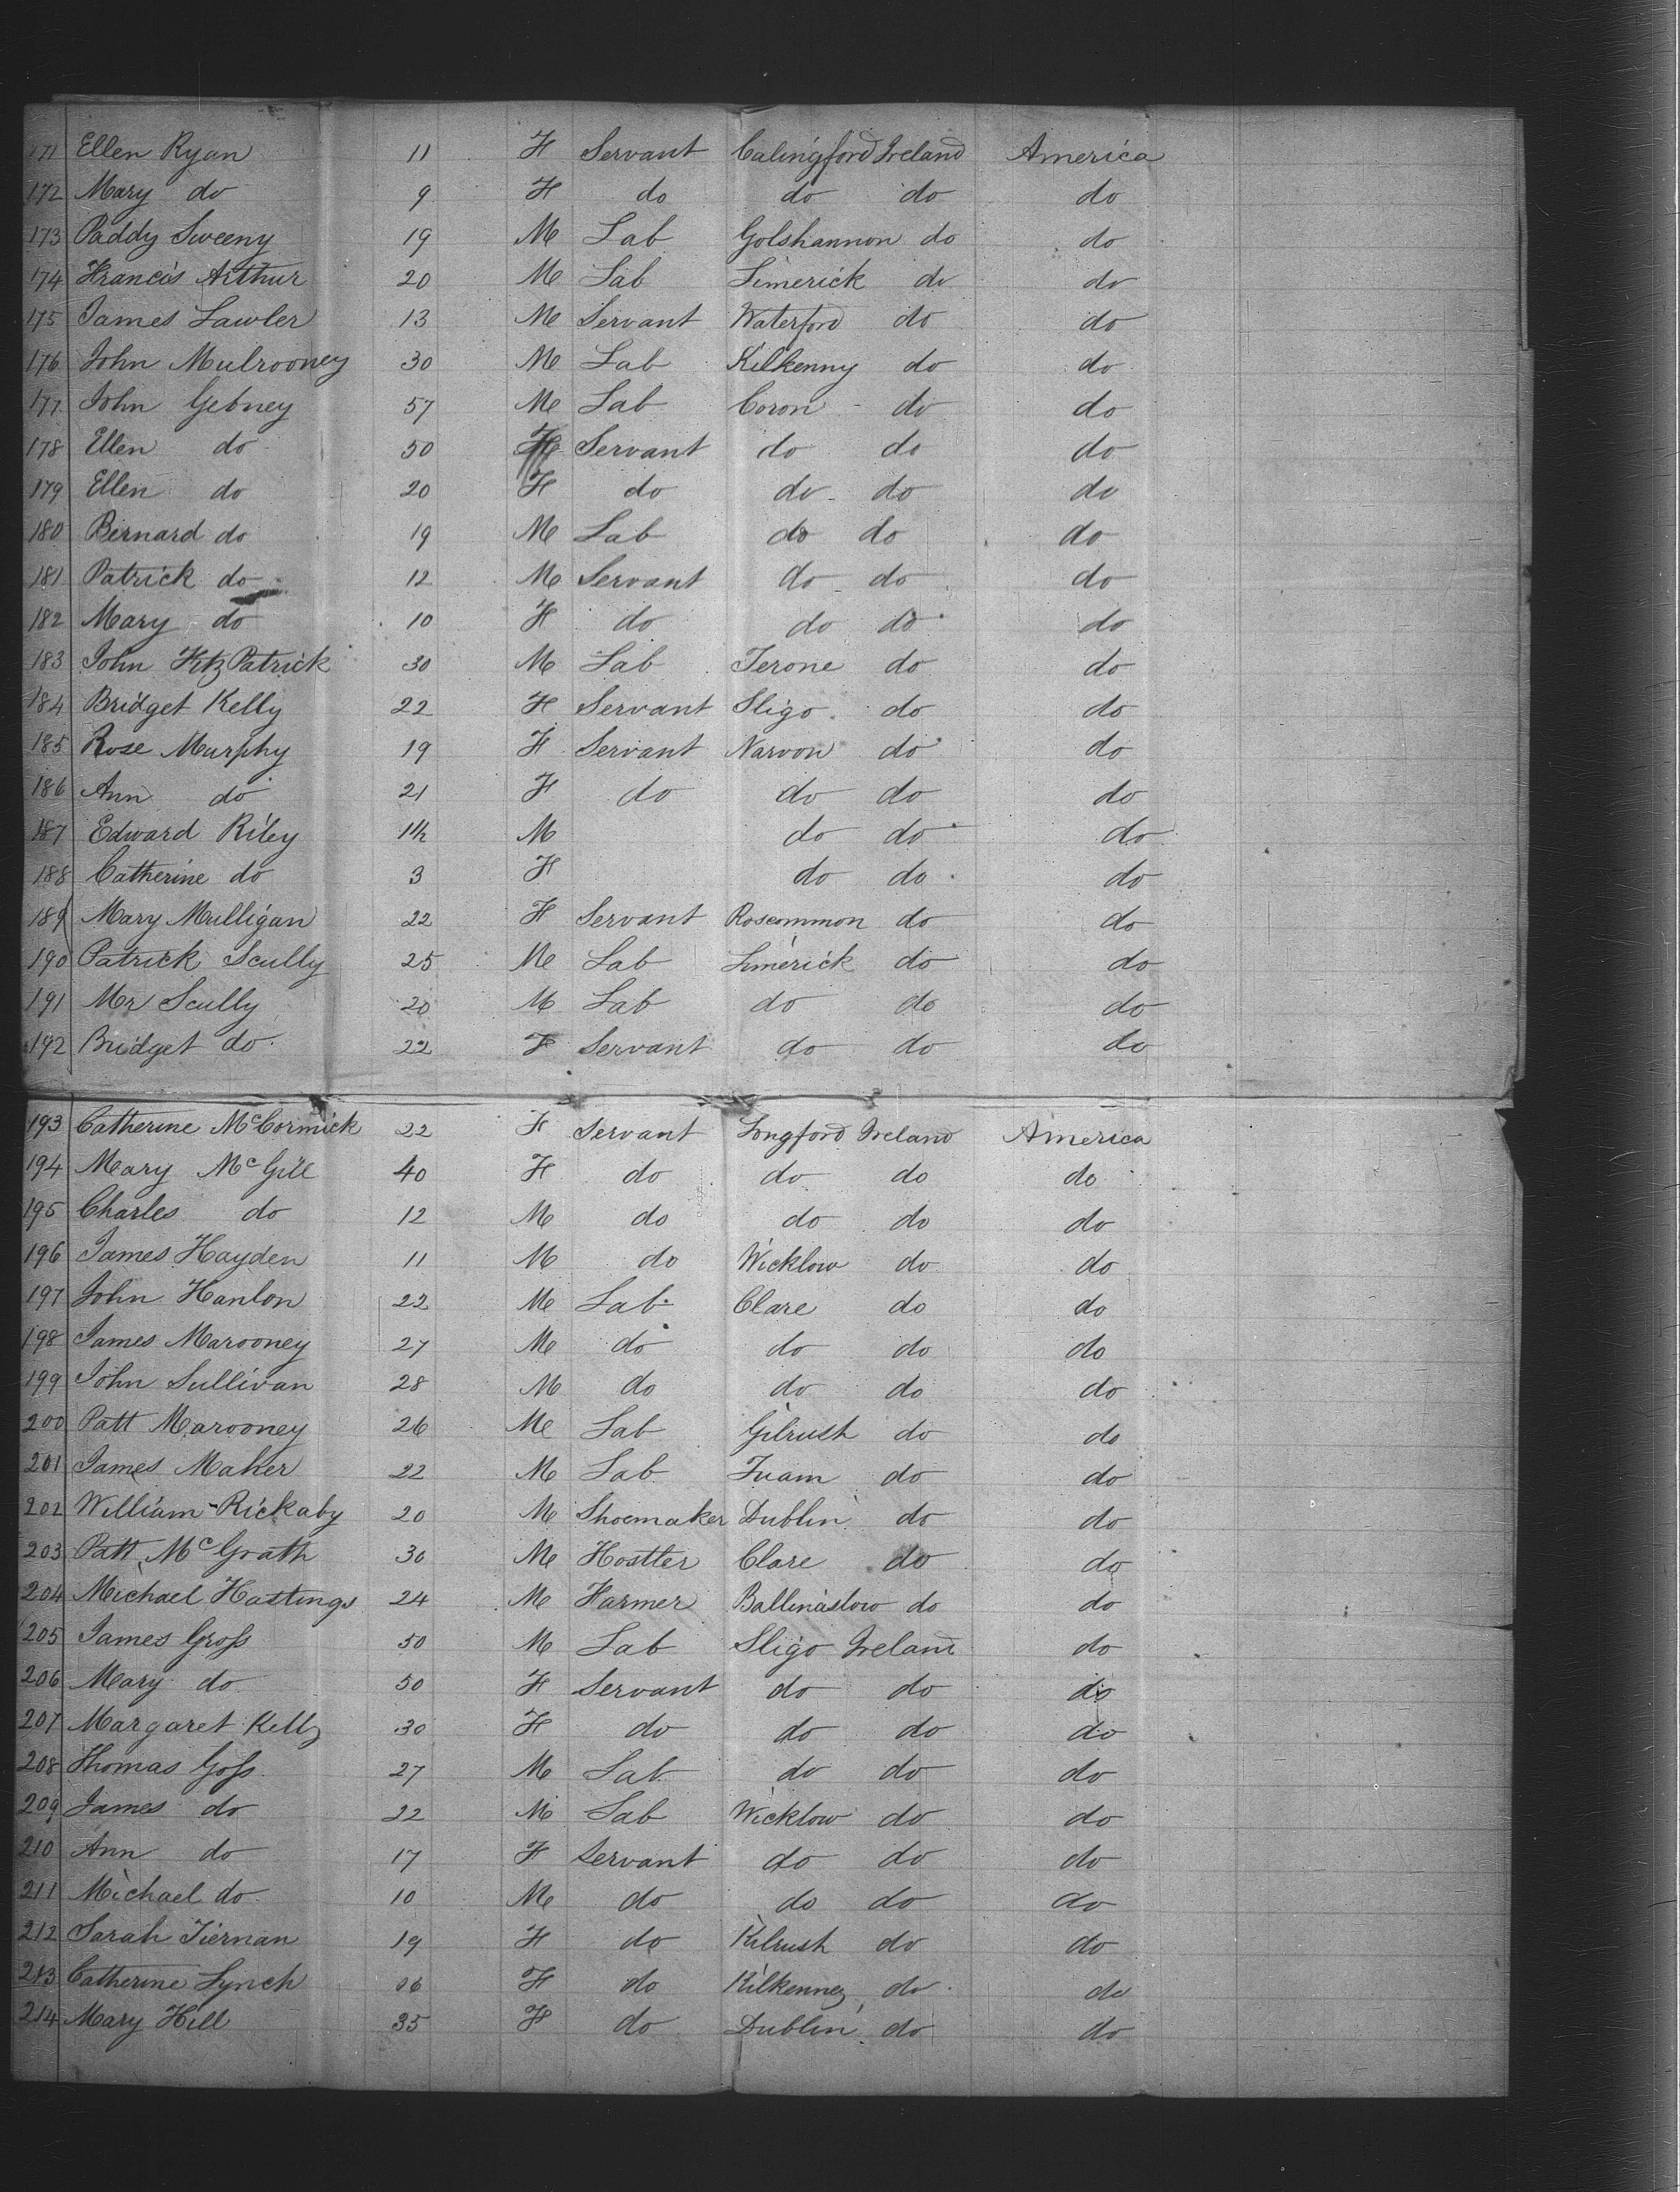 171 Ellen Ryan 11 F Servant Calingford Ireland America
172 Mary do 9 F do do do do
173 Paddy Sweeny 19 M Lab Golshannon do do
174 Francis Arthur 20 M Lab Limerick do do
175 James Lawler 13 M Servant Waterford do do
176 John Mulrooney 30 M Lab Kilkenny do do
177 John Gebney 57 M Lab Coron do do
178 Ellen do 50 F Servant do do do
179 Ellen do 20 F do do do do
180 Bernard do 19 M Lab do do do
181 Patrick do 12 M Servant do do do
182 Mary do 10 F do do do do
183 John FitzPatrick 30 M Lab Terone do do
184 Bridget Kelly 22 F Servant Sligo do do
185 Rose Murphy 19 F Servant Narvon do do
186 Ann do 21 F do do do do
187 Edward Riley M do do do
188 Catherine do 3 F do do do
189 Mary Mulligan 22 F Servant Roscommon do do
190 Patrick Scully 25 M Lab Limerick do do
191 Mr Scully 20 M Lab do do do
192 Bridget do 22 F Servant do do do
193 Catherine McCormick 22 F Servant Longford Ireland America
194 Mary McGill 40 F do do do do
195 Charles do 12 M do do do do
196 James Hayden 11 M do Wicklow do do
197 John Hanlon 22 M Lab Clare do do
198 James Marooney 27 M do do do do
199 John Sullivan 28 M do do do do
200 Patt Marooney 26 M Lab Gilrush do do
201 James Maher 22 M Lab Tuam do do
202 William Rickaby 20 M Shoemaker Dublin do do
203 Patt McGrath 30 M Hostler Clare do do
204 Michael Hastings 24 M Farmer Ballinaslow do do
205 James Gross 50 M Lab Sligo Ireland do
206 Mary do 50 F Servant do do do
207 Margaret Kelly 30 F do do do do
208 Thomas Goss 27 M Lab do do do
209 James do 22 M Lab Wicklow do do
210 Ann do 17 F Servant do do do
211 Michael do 10 M do do do do
212 Sarah Tiernan 19 F do Kilrush do do
213 Catherine Lynch F do Kilkenney do do
214 Mary Hill 35 F do Dublin do do